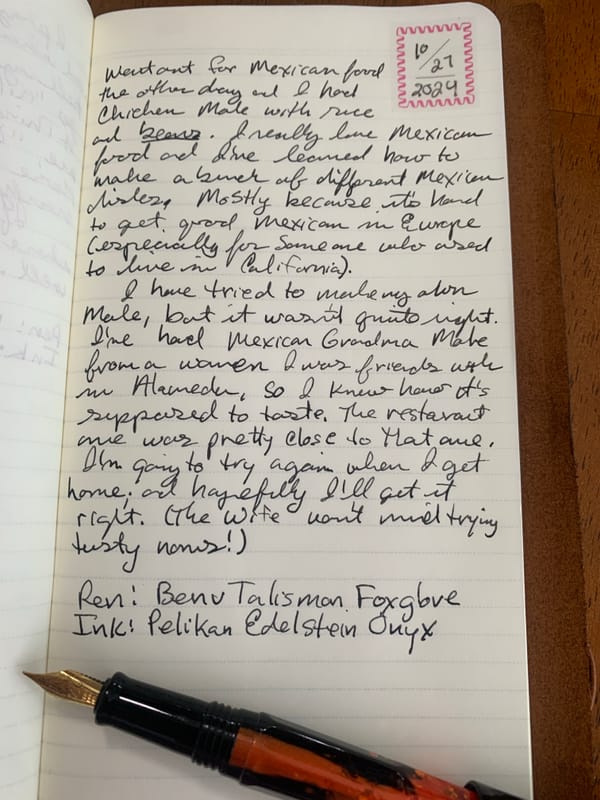 10/27
2024
Went out for Mexican food
the other day ad I had
Chicken Mole with rice
ad beans. I really love Mexican
food ad I've learned how to
make a bunch of different Mexican
dishes, Mostly because it's hard
to get good Mexican in Europe
(especially for someone who used
to live in California).
I have tried to make my own
Mole, but it wasn't quite right.
I've had Mexican Grandma Mole
from a women I was friends with
in Alameda, so I know how it's
supposed to taste. The restarant
one was pretty close to that one.
I'm going to try again when I get
home, ad hopefully I'll get it
right. (The Wife won't mind trying
tasty noms!)
Pen: Benu Talisman Foxglove
Ink: Pelikan Edelstein Onyx